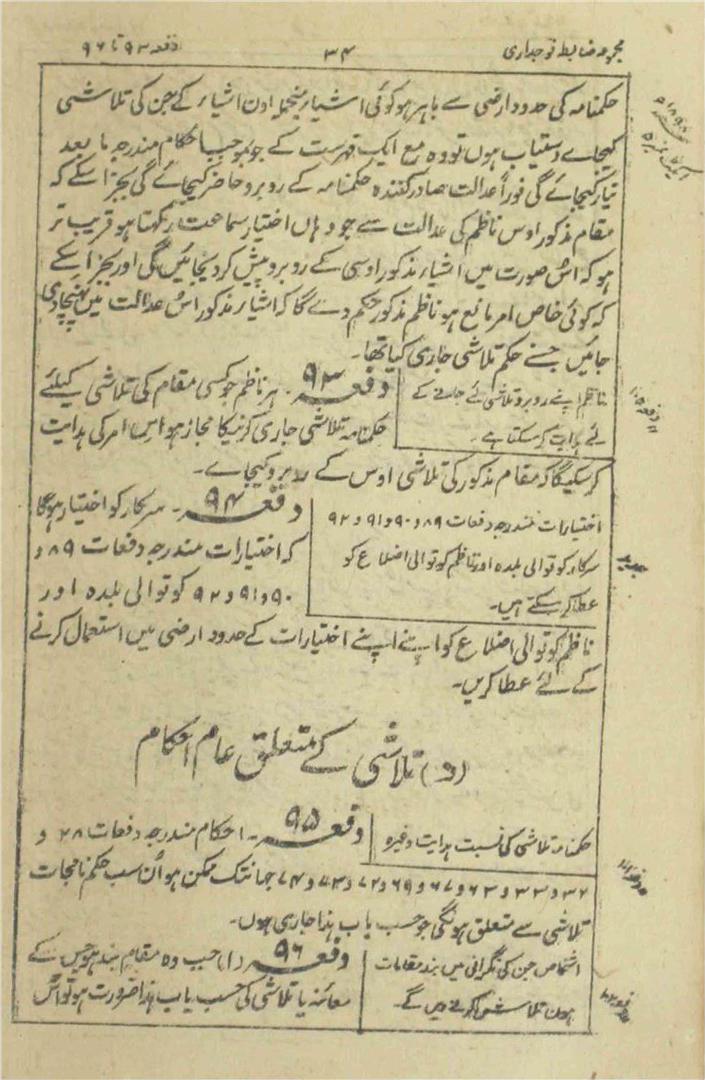 مجموعہ ضابطہ فوجداری
۳۴
دفعہ ۹۳ تا ۹۶
حکمنامہ کی حدود ارضی سے باہر ہو کوئی اشیاء منجملہ اون اشیاء کے جن کی تلاشی
کیجاے دستیاب ہوں تو وہ مع ایک فہرست کے جو بموجب احکام مندرجہ ما بعد
تیار کیجائے گی فوراً عدالت صادر کنندہ حکمنامہ کے روبرو حاضر کیجائے گی بجز اسکے کہ
مقام مذکور اوس ناظم کی عدالت سے جو وہاں اختیار سماعت رکھتا ہو قریب تر
ہو کہ اس صورت میں اشیاء مذکور اوسی کے روبرو پیش کر دیجائیں گی اور بجز اسکے
کہ کوئی خاص امر مانع ہو ناظم مذکور حکم دے گا کہ اشیاء مذکور اس عدالت میں پہنچادی
جائیں جسنے حکم تلاشی جاری کیا تھا۔
ناظم اپنے روبرو تلاشی لئے جانے کے
لئے ہدایت کر سکتا ہے۔
دفعہ ۹۳۔ ہر ناظم جو کسی مقام کی تلاشی کیلئے
حکمنامہ تلاشی جاری کرنیکا مجاز ہو اس امر کی ہدایت
کر سکیگا کہ مقام مذکور کی تلاشی اوس کے روبرو کیجاے۔
اختیارات مندرجہ دفعات ۸۹ و ۹۰ و ۹۱ و ۹۲
سرکار کوتوالی بلدہ اور ناظم کوتوالی اضلاع کو
عطا کر سکتے ہیں۔
دفعہ ۹۴۔ سرکار کو اختیار ہوگا
کہ اختیارات مندرجہ دفعات ۸۹ و
۹۰ و ۹۱ و ۹۲ کوتوالی بلدہ اور
ناظم کوتوالی اضلاع کو اپنے اپنے اختیارات کے حدود ارضی میں استعمال کرنے
کے لئے عطا کریں۔
جدید
(د) تلاشی کے متعلق عام احکام
حکمنامہ تلاشی کی نسبت ہدایت وغیرہ
دفعہ ۹۵۔ احکام مندرجہ دفعات ۲۸ و
۳۲ و ۳۳ و ۶۳ و ۶۷ و ۶۹ و ۷۲ و ۷۳ و ۷۴ جہانتک ممکن ہو اُن سب حکمنامجات
تلاشی سے متعلق ہونگی جو حسب باب ہذا جاری ہوں۔
اشخاص جن کی نگرانی میں بند مقامات
ہوں تلاشی کرنے دیں گے۔
دفعہ ۹۶ (۱) جب وہ مقام بند ہو جس کے
معائنہ یا تلاشی کی حسب باب ہذا ضرورت ہو تو اُس